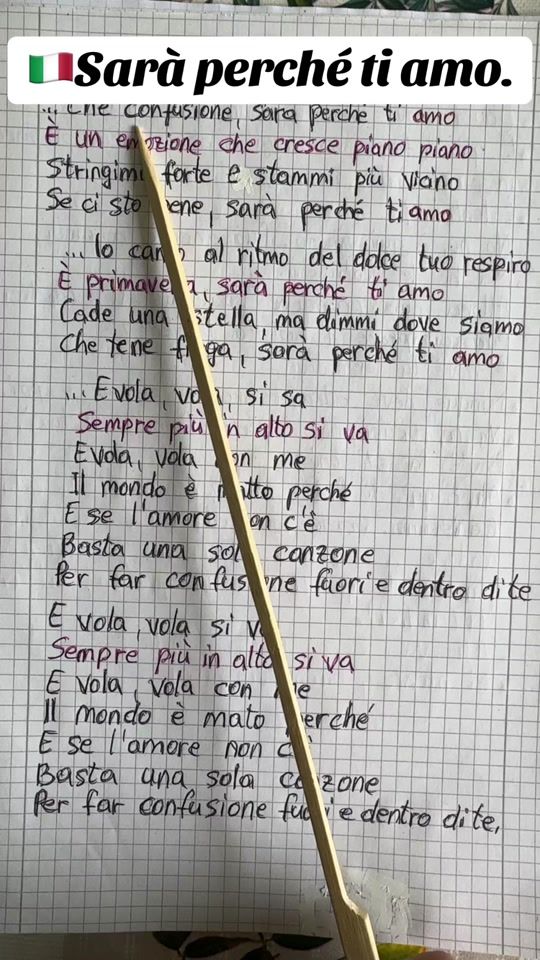 🇮🇹Sarà perché ti amo.
... Che confusione, sara perché ti amo
È un emozione che cresce piano piano
Stringimi forte e stammi più vicino
Se ci sto bene, sarà perché ti amo
... Io canto al ritmo del dolce tuo respiro
È primavera, sarà perché ti amo
Cade una stella, ma dimmi dove siamo
Che tene frega, sarà perché ti amo
... E vola, vola, si sa
Sempre più in alto si va
E vola, vola con me
Il mondo è matto perché
E se l'amore non c'è
Basta una sola canzone
Per far confusione fuori e dentro di te
E vola, vola si va
Sempre più in alto si va
E vola, vola con me
Il mondo è mato perché
E se l'amore non c'è
Basta una sola canzone
Per far confusione fuori e dentro di te,